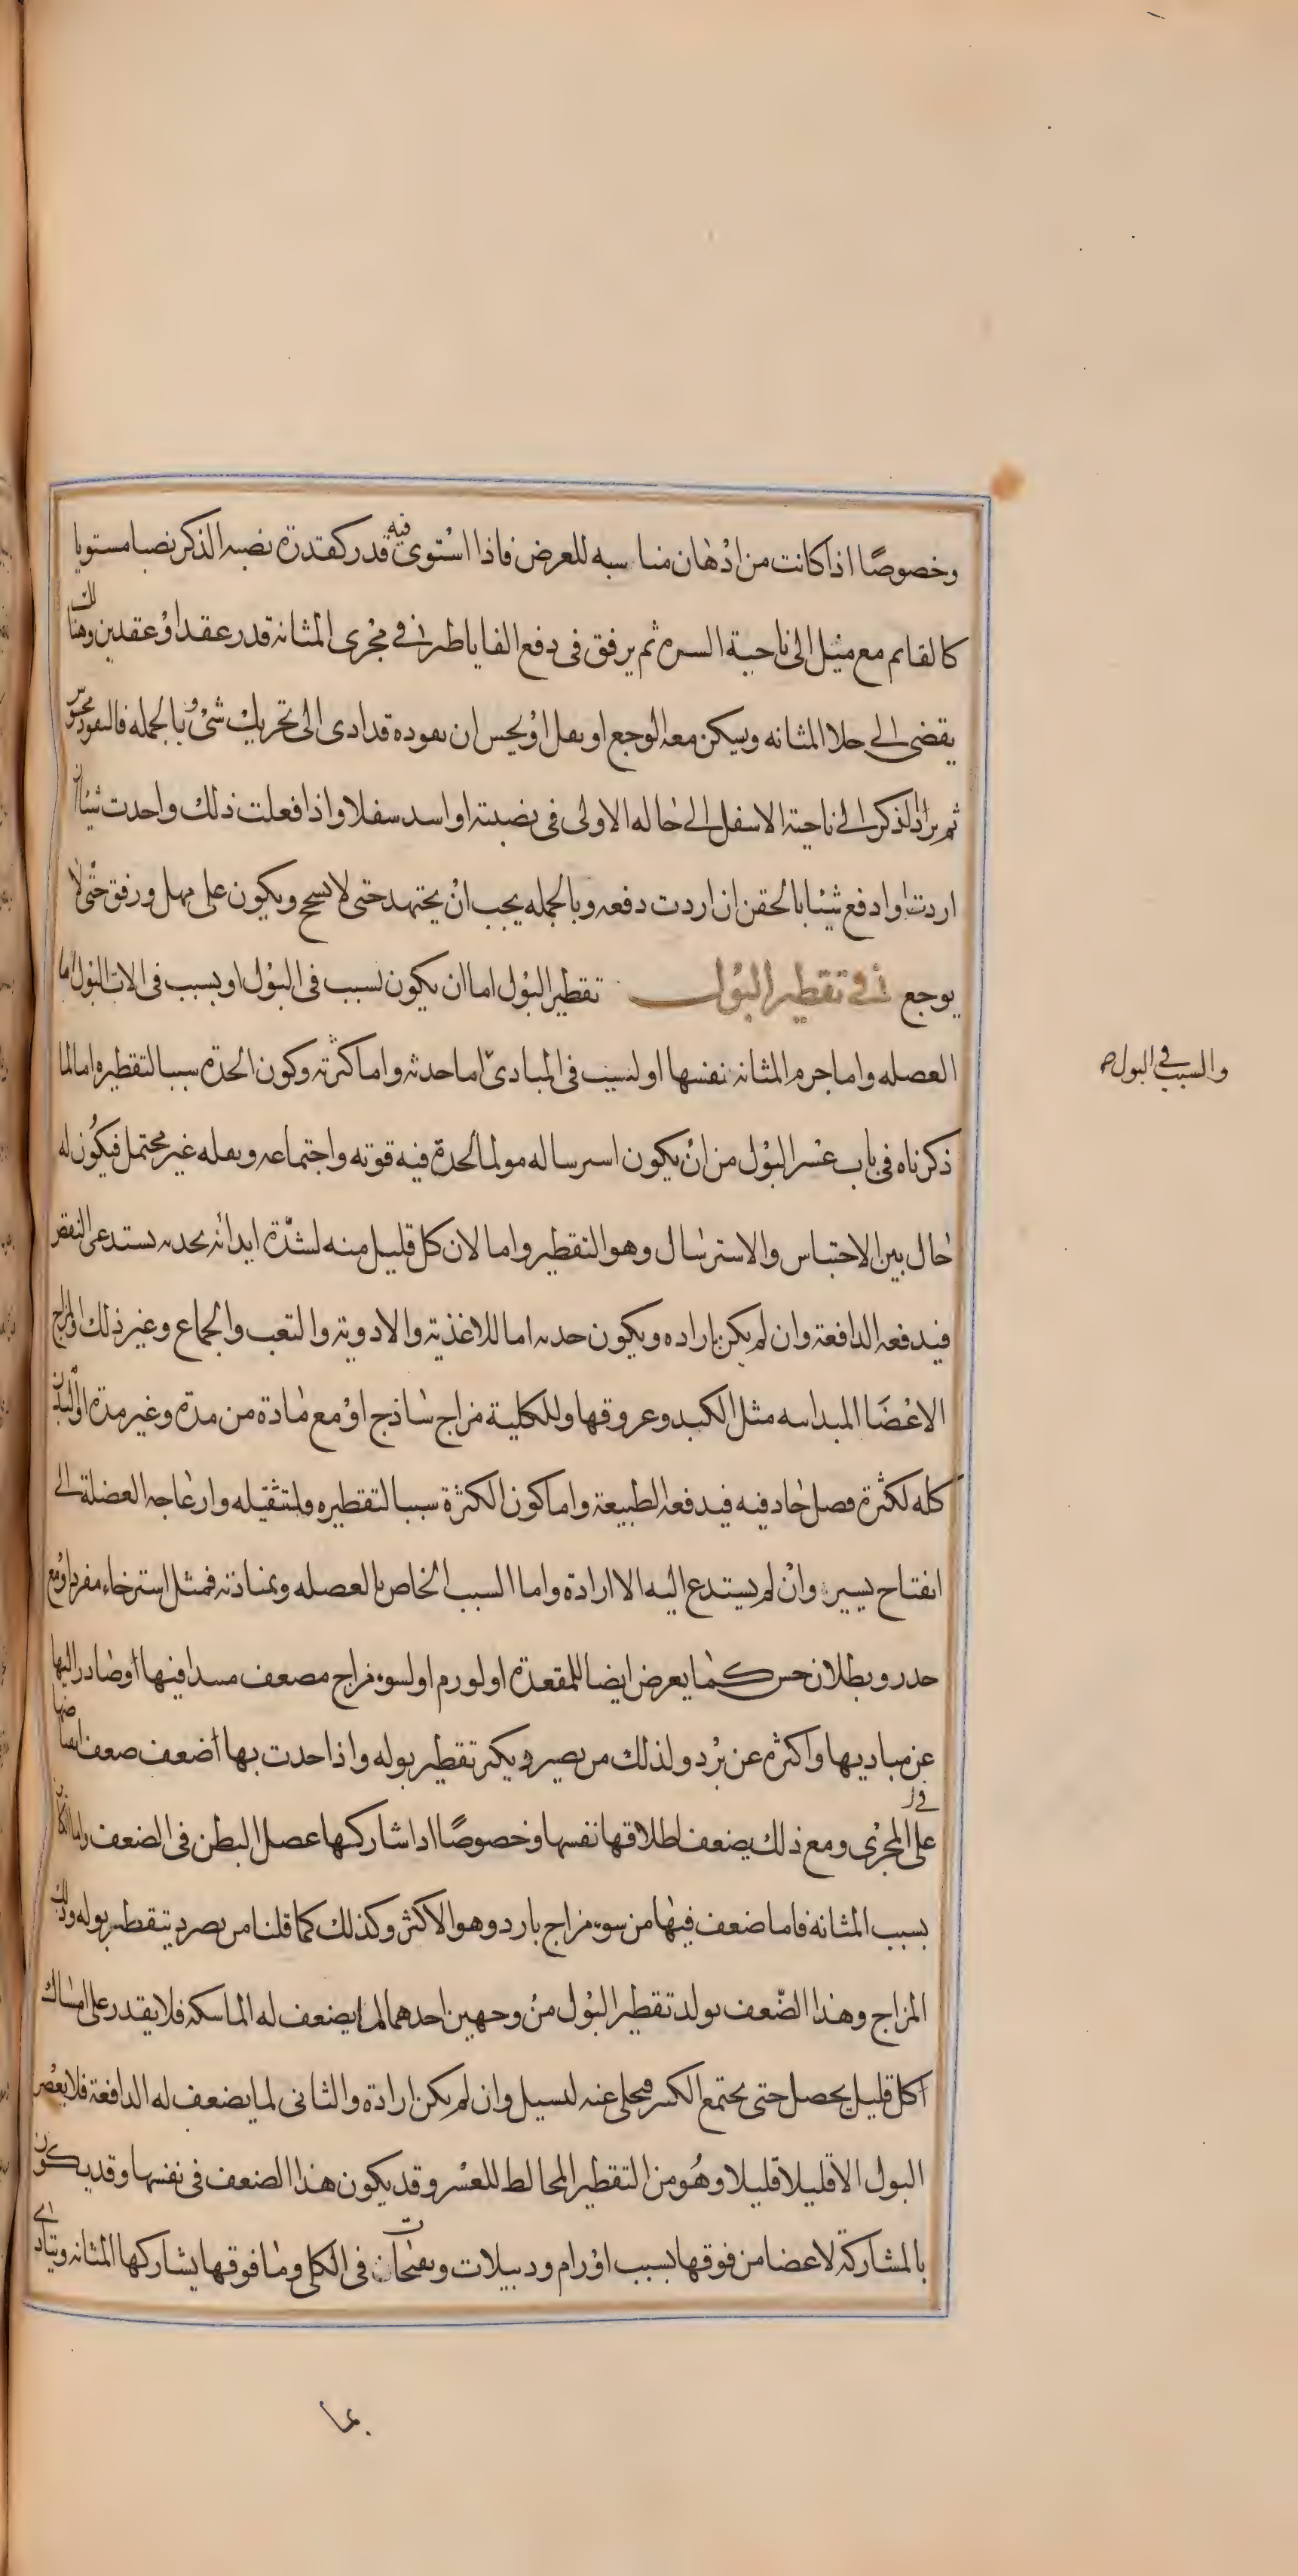 وخصوصًا اذا كانت من ادْهَان مناسبه للعرض فاذا استوى فيه قدر كقدرة نصبه الذكر نصبا مستويا
كالقايم مع ميْل الى ناحية السره ثم يرفق فى دفع القاياطر فى مجْرى المثانه قدر عقد اوْ عقدين وهنالك
يقضى الى خلا المثانه ويسكن معه الوجع او يقل اوْ يحس ان نفوده قد ادى الى تحريك شىْ وبالجمله فالنفود محسوس
ثم يرد الذكر الى ناحية الاسفل الى حاله الاولى فى نصبته او اسد سفلا واذا فعلت ذلك واحدت شيئا ان
اردت او ادفع شيئا بالحقن ان اردت دفعه وبالجمله يجب انْ يجتهد حتى لا يسحج ويكون على مهل ورفق حتْى لا
يوجع فى تقطير البوْل تقطير البوْل اما ان يكون لسبب فى البوْل او بسبب فى الات البوْل اما
العصله واما جرم المثانه نفسها او لسبب فى المبادىْ اما حدته واما كثرته وكون الحدة سببا لتقطيره اما لما
والسبب فى البول
ذكرناه فى باب عسْر البوْل من انْ يكون استرساله مولما لحدة فيه قوته واجتماعه وثقله غير محتمل فيكوُن له
حَال بين الاحتباس والاسترسَال وهو التقطير واما لان كل قليل منه لشدّة ايدائه بحدته يستدعى النفض
فيدفعه الدافعة وان لم يكن باراده ويكون حدته اما للاغذية والادوية والتعب والجماع وغير ذلك او لمزاج
الاعْضَا المبداىيه مثل الكبد وعروقها وللكلية مزاج سَاذج اوْ مع مَادة من مدة وغير مدة او للبدن
كله لكثْرة فصل حَاد فيه فيدفعه الطبيعة واما كون الكثرة سببا لتقطيره فلتثقيله وارعَاجه العضلة الى
انفتاح يسير وانْ لم يستدع اليه الاارادة واما السبب الخاص بالعصله ومنادته فمثل استرخاء مفرد او مع
حدر وبطلان حس كمَا يعرض ايضا للمقعدة او لورم او لسوء مزاج مصعف مسدا فيها اوْ صَادر اليها
عن مباديها واكثره عن برْد ولذلك من يصير ديكثر تقطير بوله واذا حدت بها اضعف صعف انضمامها
على المجْرى ومع ذلك يضعف اطلاقها نفسها وخصوصًا ادا شاركها عصل البطن فى الضعف واما الكاين
بسبب المثانه فاما ضعف فيهَا من سوء مزاج بارد وهو الاكثر وكذلك كما قلنا من يصرد يتقطر بوله وذلك
المزاج وهذا الضّعف يولد تقطير البوْل منْ وجهين احدهما لما يضعف له الماسكه فلا يقدر على امسَاك
اكل قليل يحصل حتى يجتمع الكسر فيحلى عنه لىسيل وان لم يكن ارادة والثانى لما يضعف له الدافعة فلا يعْصر
البول الاَّ قليلاً قليلا وهُو من التقطير المخالط للعسْر وقد يكون هذا الضعف فى نفسها وقد يكون
بالمشاركة لاعضا من فوقها بسبب اوْرام ودبيلات وتقيحات فى الكلى ومَا فوقها يشاركها المثانه ويتادى